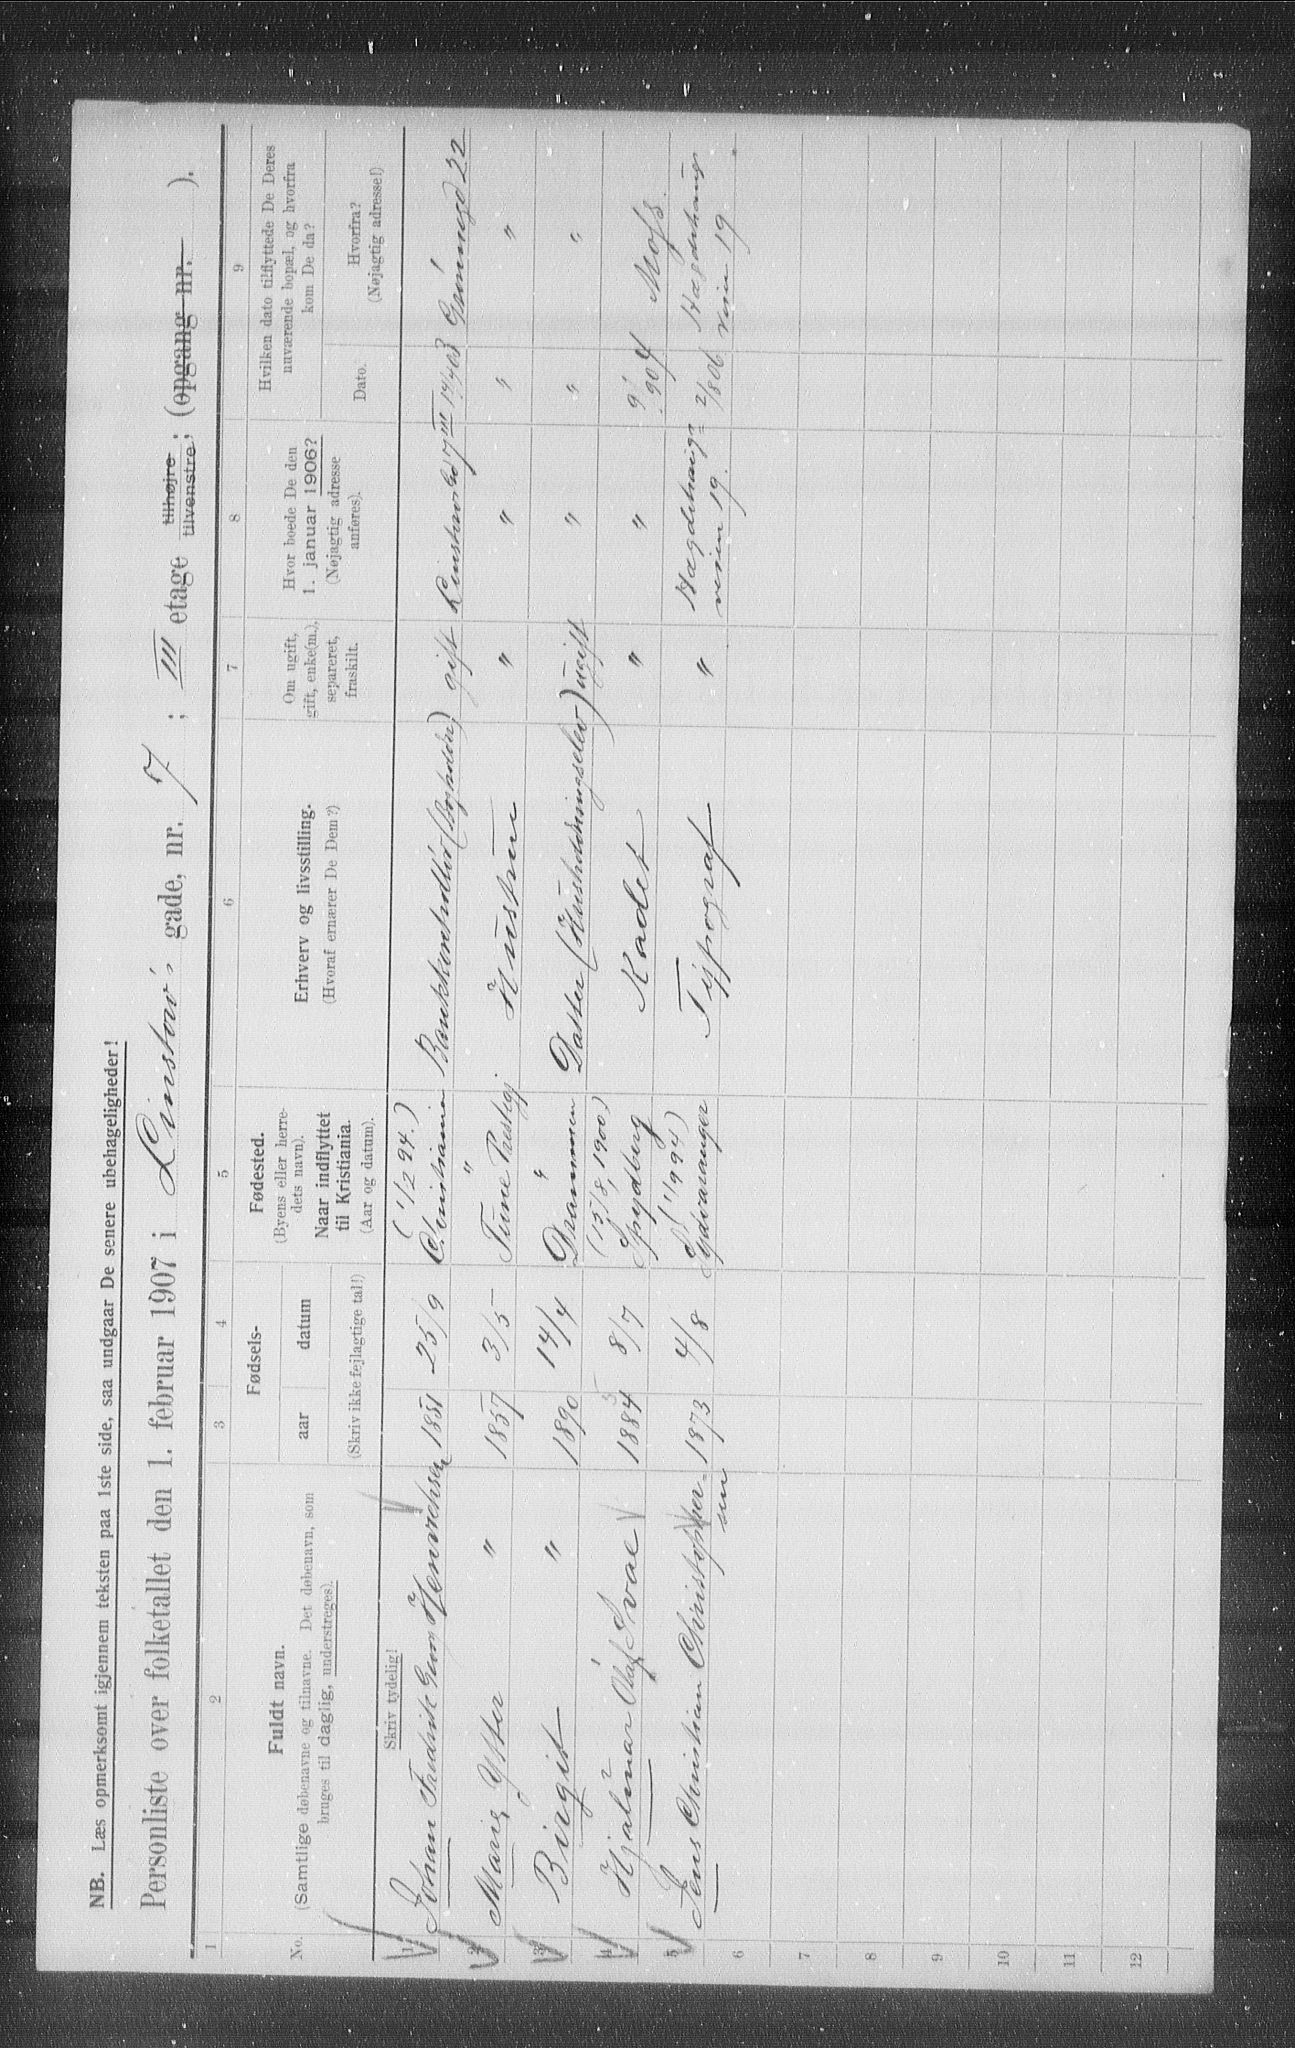 NB. Læs opmerksomt igjennem teksten paa 1ste side, saa undgaar De senere ubehageligheder!
Personliste over folketallet den 1. februar 1907 i Linstows gade, nr. 7; III etage tilhøjre tilvenstre; (opgang nr. ).
1 2 3 4 5 6 7 8 9
No.
Fuldt navn.
(Samtlige døbenavne og tilnavne. Det døbenavn, som
bruges til daglig, understreges).
Skriv tydelig!
Fødsels-
aar datum
(Skriv ikke fejlagtige tal!)
Fødested.
(Byens eller herre-
dets navn).
Naar indflyttet
til Kristiania.
(Aar og datum).
Erhverv og livsstilling.
(Hvoraf ernærer De Dem?)
Om ugift,
gift, enke(m.),
separeret,
fraskilt.
Hvor boede De den
1. januar 1906?
(Nøjagtig adresse
anføres).
Hvilken dato tilflyttede De Deres
nuværende bopæl, og hvorfra
kom De da?
Dato.
Hvorfra?
(Nøjagtig adresse!)
(1/2 94.)
1 Johan Fredrik Henrichsen 1851 25/9 Christiania Bankkontrollør gift 7 III 14/4 03 22
2 Marie " 1857 3/5 " Tune Hustru " " " "
3 Birgit " 1890 14/4 " Drammen Datter (Husholdningselev) ugift " " "
(15/8, 1900)
4 Hjalmar Olaf 1884 8/7 Spydberg Kadet " " 904 Moss.
5 Jens Christian Christopher- 1873 4/8 Sydvaranger Typograf " Hægdehaugs- 2/8 06 Hægdehaugs
sen veien 19. veien 19
6
7
8
9
10
11
12